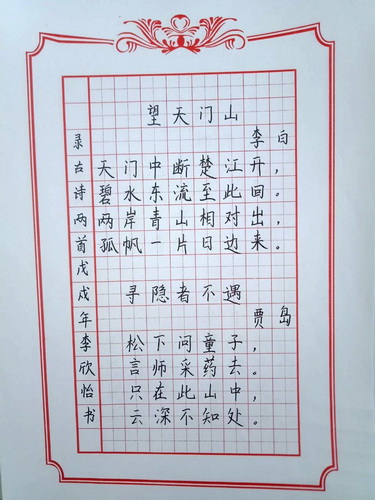 望天门山
李白
天门中断楚江开，
碧水东流至此回。
两岸青山相对出，
孤帆一片日边来。
寻隐者不遇
贾岛
松下问童子，
言师采药去。
只在此山中，
云深不知处。
录古诗两首戊戌年李欣怡书